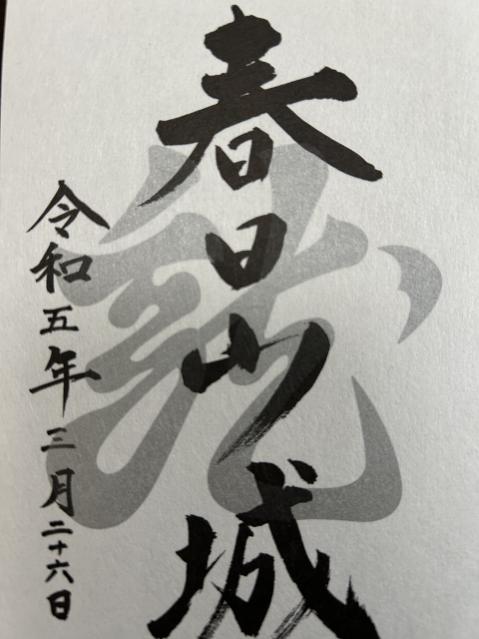 春日山城
龍
令和五年三月二十六日